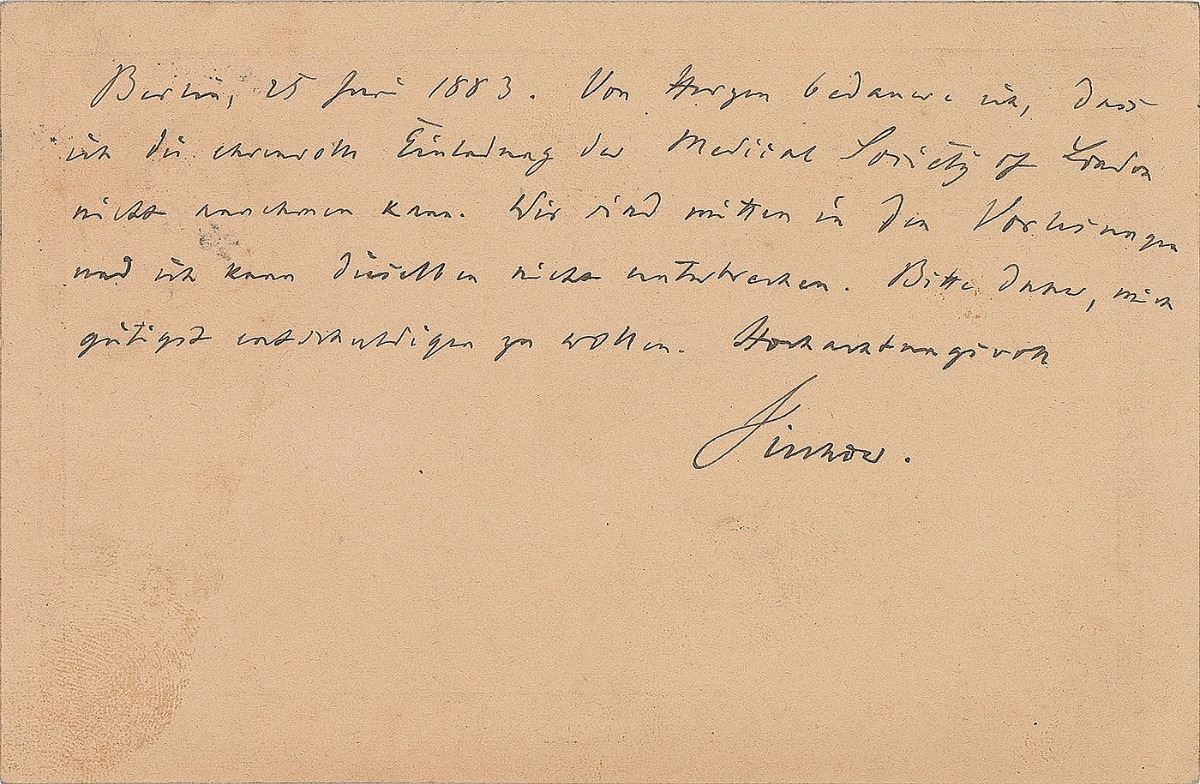 Berlin, 25 Juni 1883. Von Herzen bedauere ich, dass
ich die ehrenvolle Einladung der Medical Society of London
nicht annehmen kann. Wir sind mitten in den Vorlesungen
und ich kann dieselben nicht unterbrechen. Bitte daher, mich
gütigst entschuldigen zu wollen. Hochachtungsvoll
Virchow.